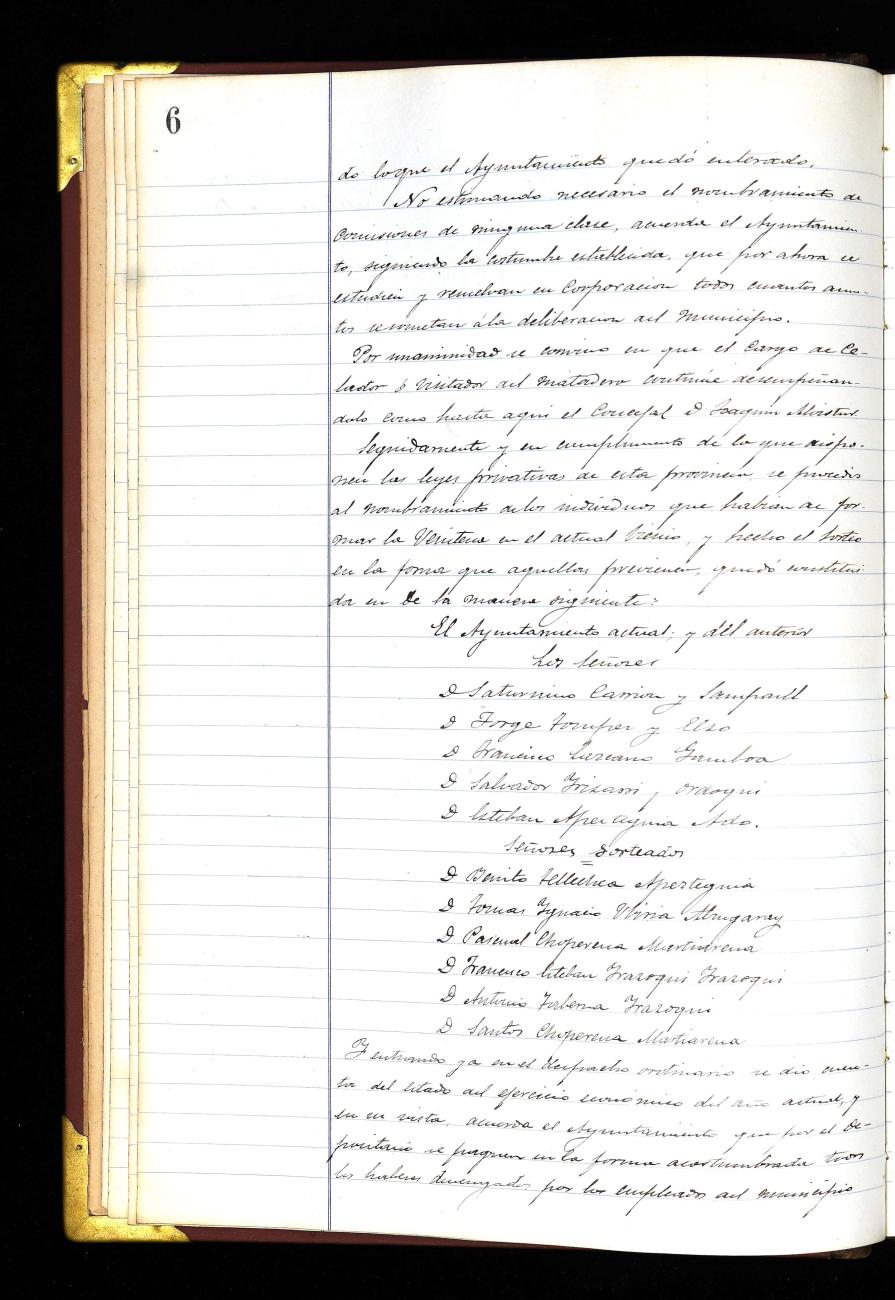 6
do lo que el Ayuntamiento quedó enterado.
No estimando necesario el nombramiento de
Comisiones de ninguna clase, acuerda el Ayuntamien-
to, siguiendo la costumbre establecida, que por ahora se
estudien y resuelvan en Corporacion todos cuantos asun-
tos se sometan á la deliberacion del Municipio.
Por unanimidad se convino en que el Cargo de Ce-
lador ó Visitador del Matadero continúe desempeñan-
dolo como hasta aqui el Concejal D Joaquin
Seguidamente y en cumplimiento de lo que dispo-
nen las leyes privativas de esta provincia, se procedió
al nombramiento de los individuos que habian de for-
mar la Veintena en el actual bienio, y hecho el sorteo
en la forma que aquellas previenen, quedó constitui
da en de la manera siguiente:
El Ayuntamiento actual; y del anterior
Los Señores
D Saturnino Carrion y
D Jorge y Elso
D Francisco Lazcano Gamboa
D Salvador Irisarri y Ordoqui
D Esteban Aperteguia
Señores sorteados
D Benito Tellechea Aperteguia
D Tomas Ignacio
D Pascual Choperena Martiarena
D Francisco Esteban Irazoqui Irazoqui
D Antonio Taberna Irazoqui
D Santos Choperena Martiarena
Y entrando ya en el despacho ordinario se dio cuen-
ta del estado del ejercicio económico del año actual, y
en su vista, acuerda el Ayuntamiento que por el De-
positario se paguen en la forma acostumbrada todos
los haberes devengados por los empleados del municipio